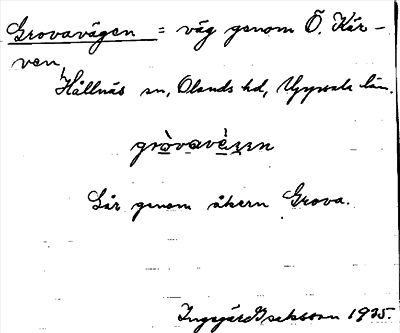 Grovavägen = väg genom Ö. Kär-
ven,
Hållnäs sn, Olands hd, Uppsala län.
gròvavè̱gen
Går genom åkern Grova.
Ingegärd Isaksson 1935.